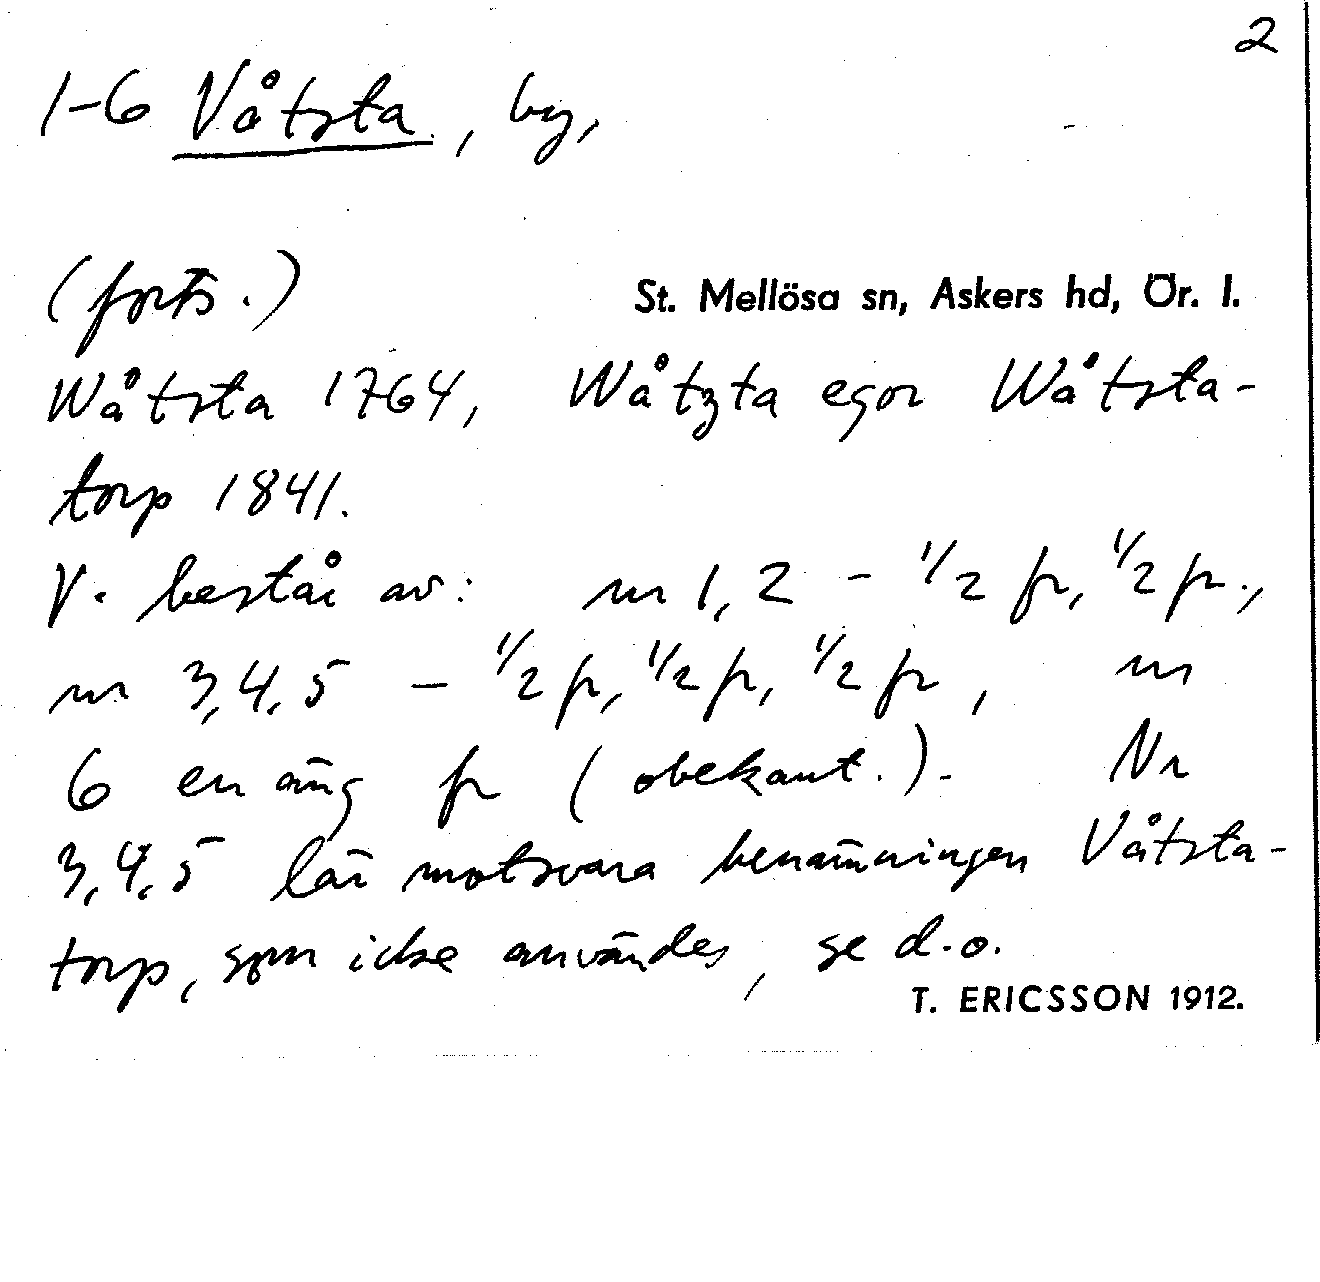 2
1-6 Våtsta, by,
(forts.)
St. Mellösa sn, Askers hd, Ör. l.
Wåtsta 1764, Wåtzta egor Wåtsta-
torp 1841.
V. består av: nr 1, 2 - 1/2 fr, 1/2 fr.,
nr 3, 4, 5 - 1/2 fr, 1/2 fr, 1/2 fr, nr
6 en äng fr (obekant.). Nr
3, 4, 5 lär motsvara benämningen Våtsta-
torp, som icke användes, se d.o.
T. ERICSSON 1912.